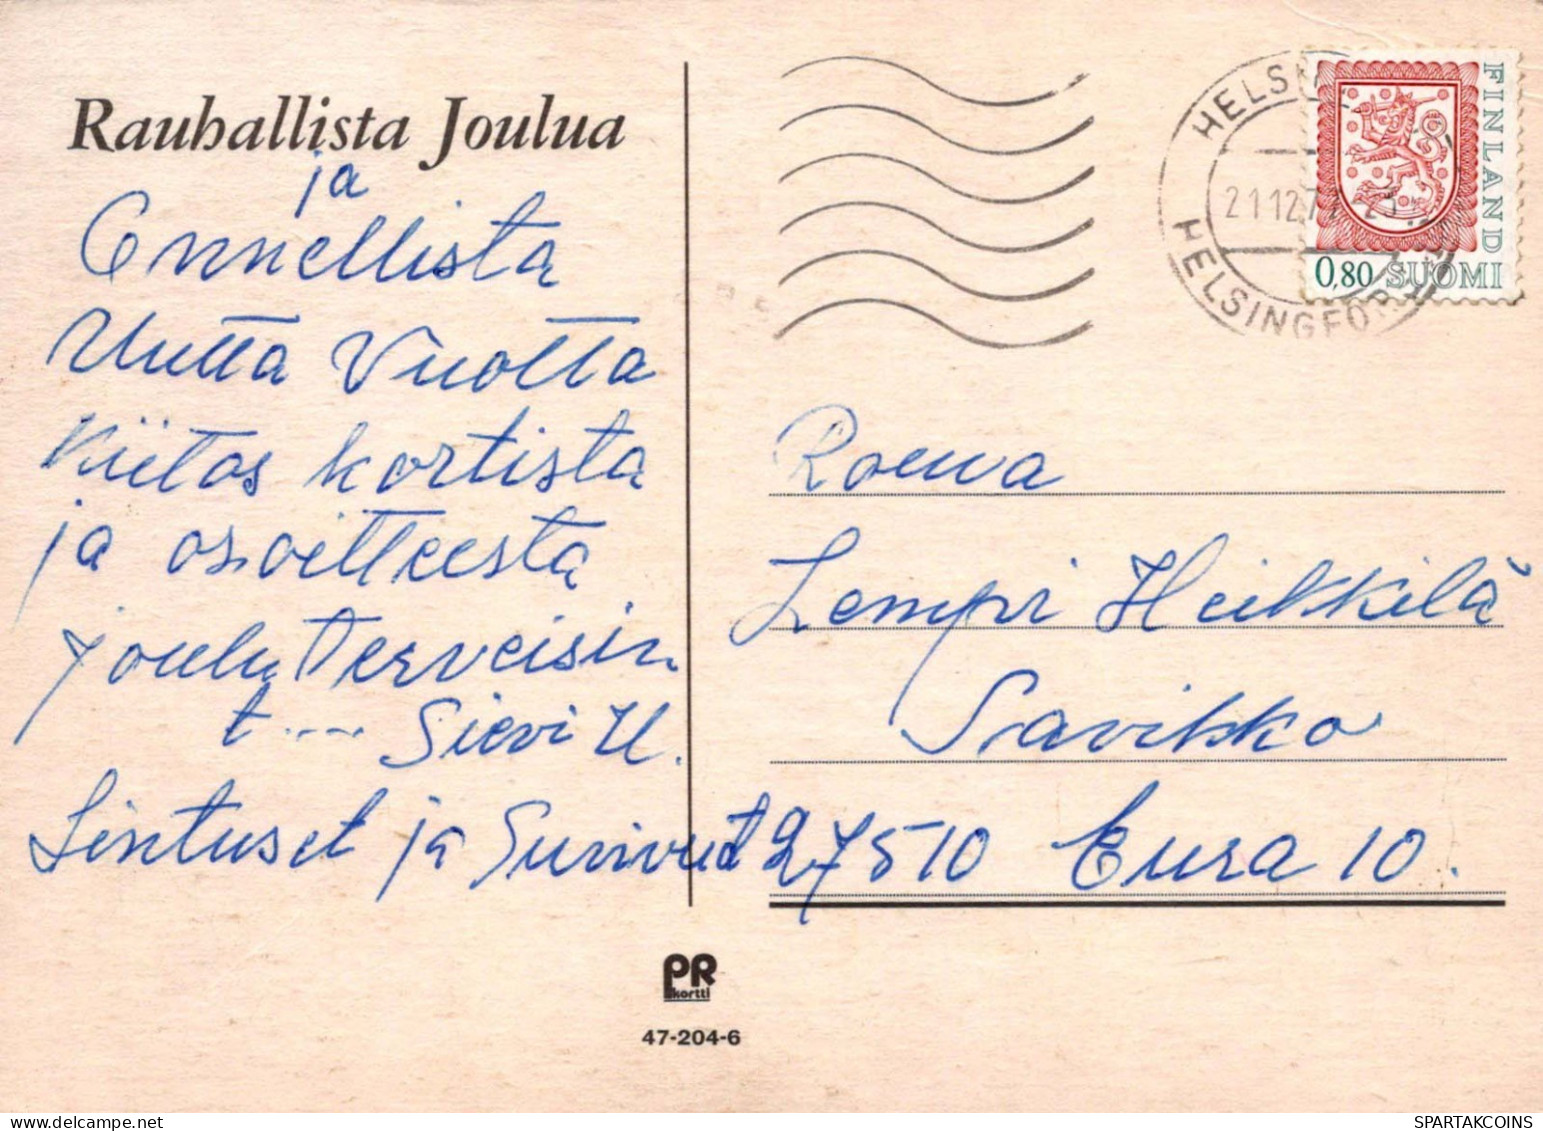 Rauhallista Joulua
ja
Onnellista
Uutta Vuotta
Kiitos kortista
ja osoitteesta
joulu terveisin
t.... Sievi H.
Sintuset ja
HELSINKI
21.12.7
HELSINGFORS
FINLAND
0,80 SUOMI
Rouva
Lempi Heikkilä
Savikko
27510 Eura 10.
PR
kortti
47-204-6
SPARTAKCOINS.COM